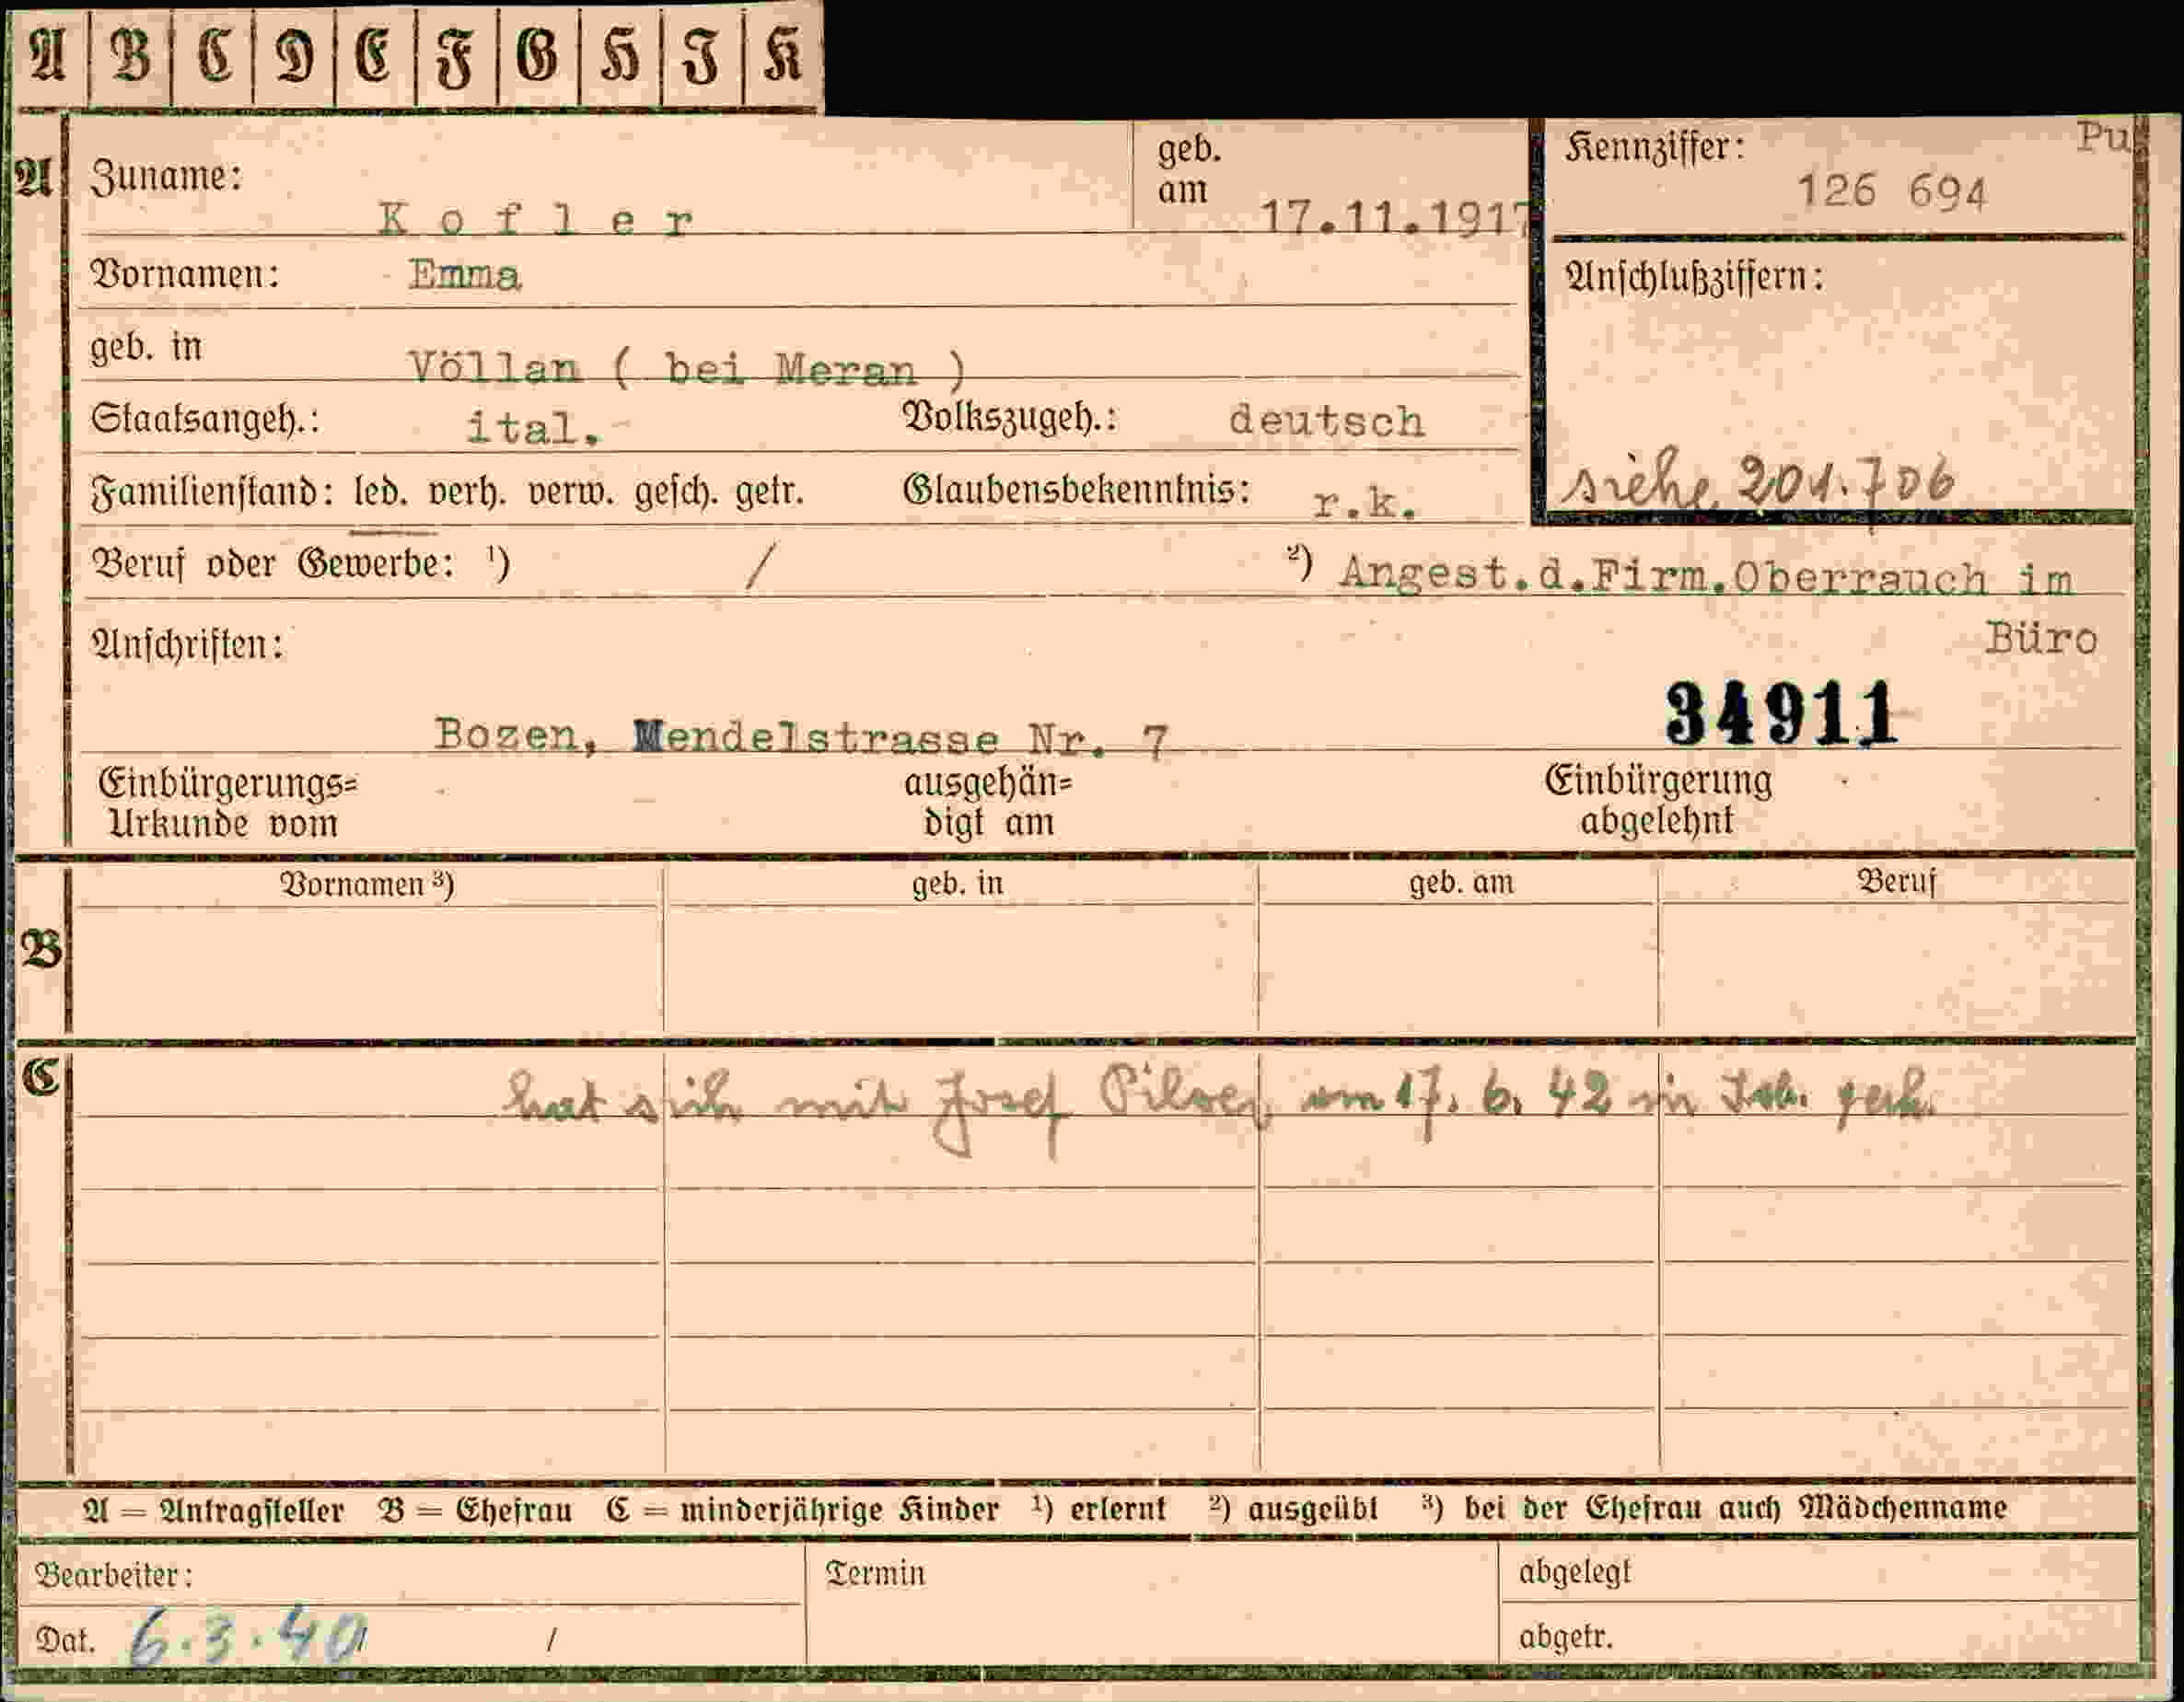 A B C D E F G H I K
Pu
A Zuname: Kofler geb. am 17.11.1917 Kennziffer: 126 694
Vornamen: Emma Anschlußziffern:
geb. in Völlan ( bei Meran )
Staatsangeh.: ital. Volkszugeh.: deutsch
Familienstand: led. verh. verw. gesch. getr. Glaubensbekenntnis: r.k. siehe 201.706
Beruf oder Gewerbe: ¹) / ²) Angest.d.Firm.Oberrauch im
Anschriften: Büro
34911
Bozen, Mendelstrasse Nr. 7
Einbürgerungs= ausgehän= Einbürgerung
Urkunde vom digt am abgelehnt
Vornamen ³) geb. in geb. am Beruf
B
C hat sich mit Josef am 17. 6. 42 in
A = Antragsteller B = Ehefrau C = minderjährige Kinder ¹) erlernt ²) ausgeübt ³) bei der Ehefrau auch Mädchenname
Bearbeiter: Termin abgelegt
Dat. 6.3.40 / abgetr.